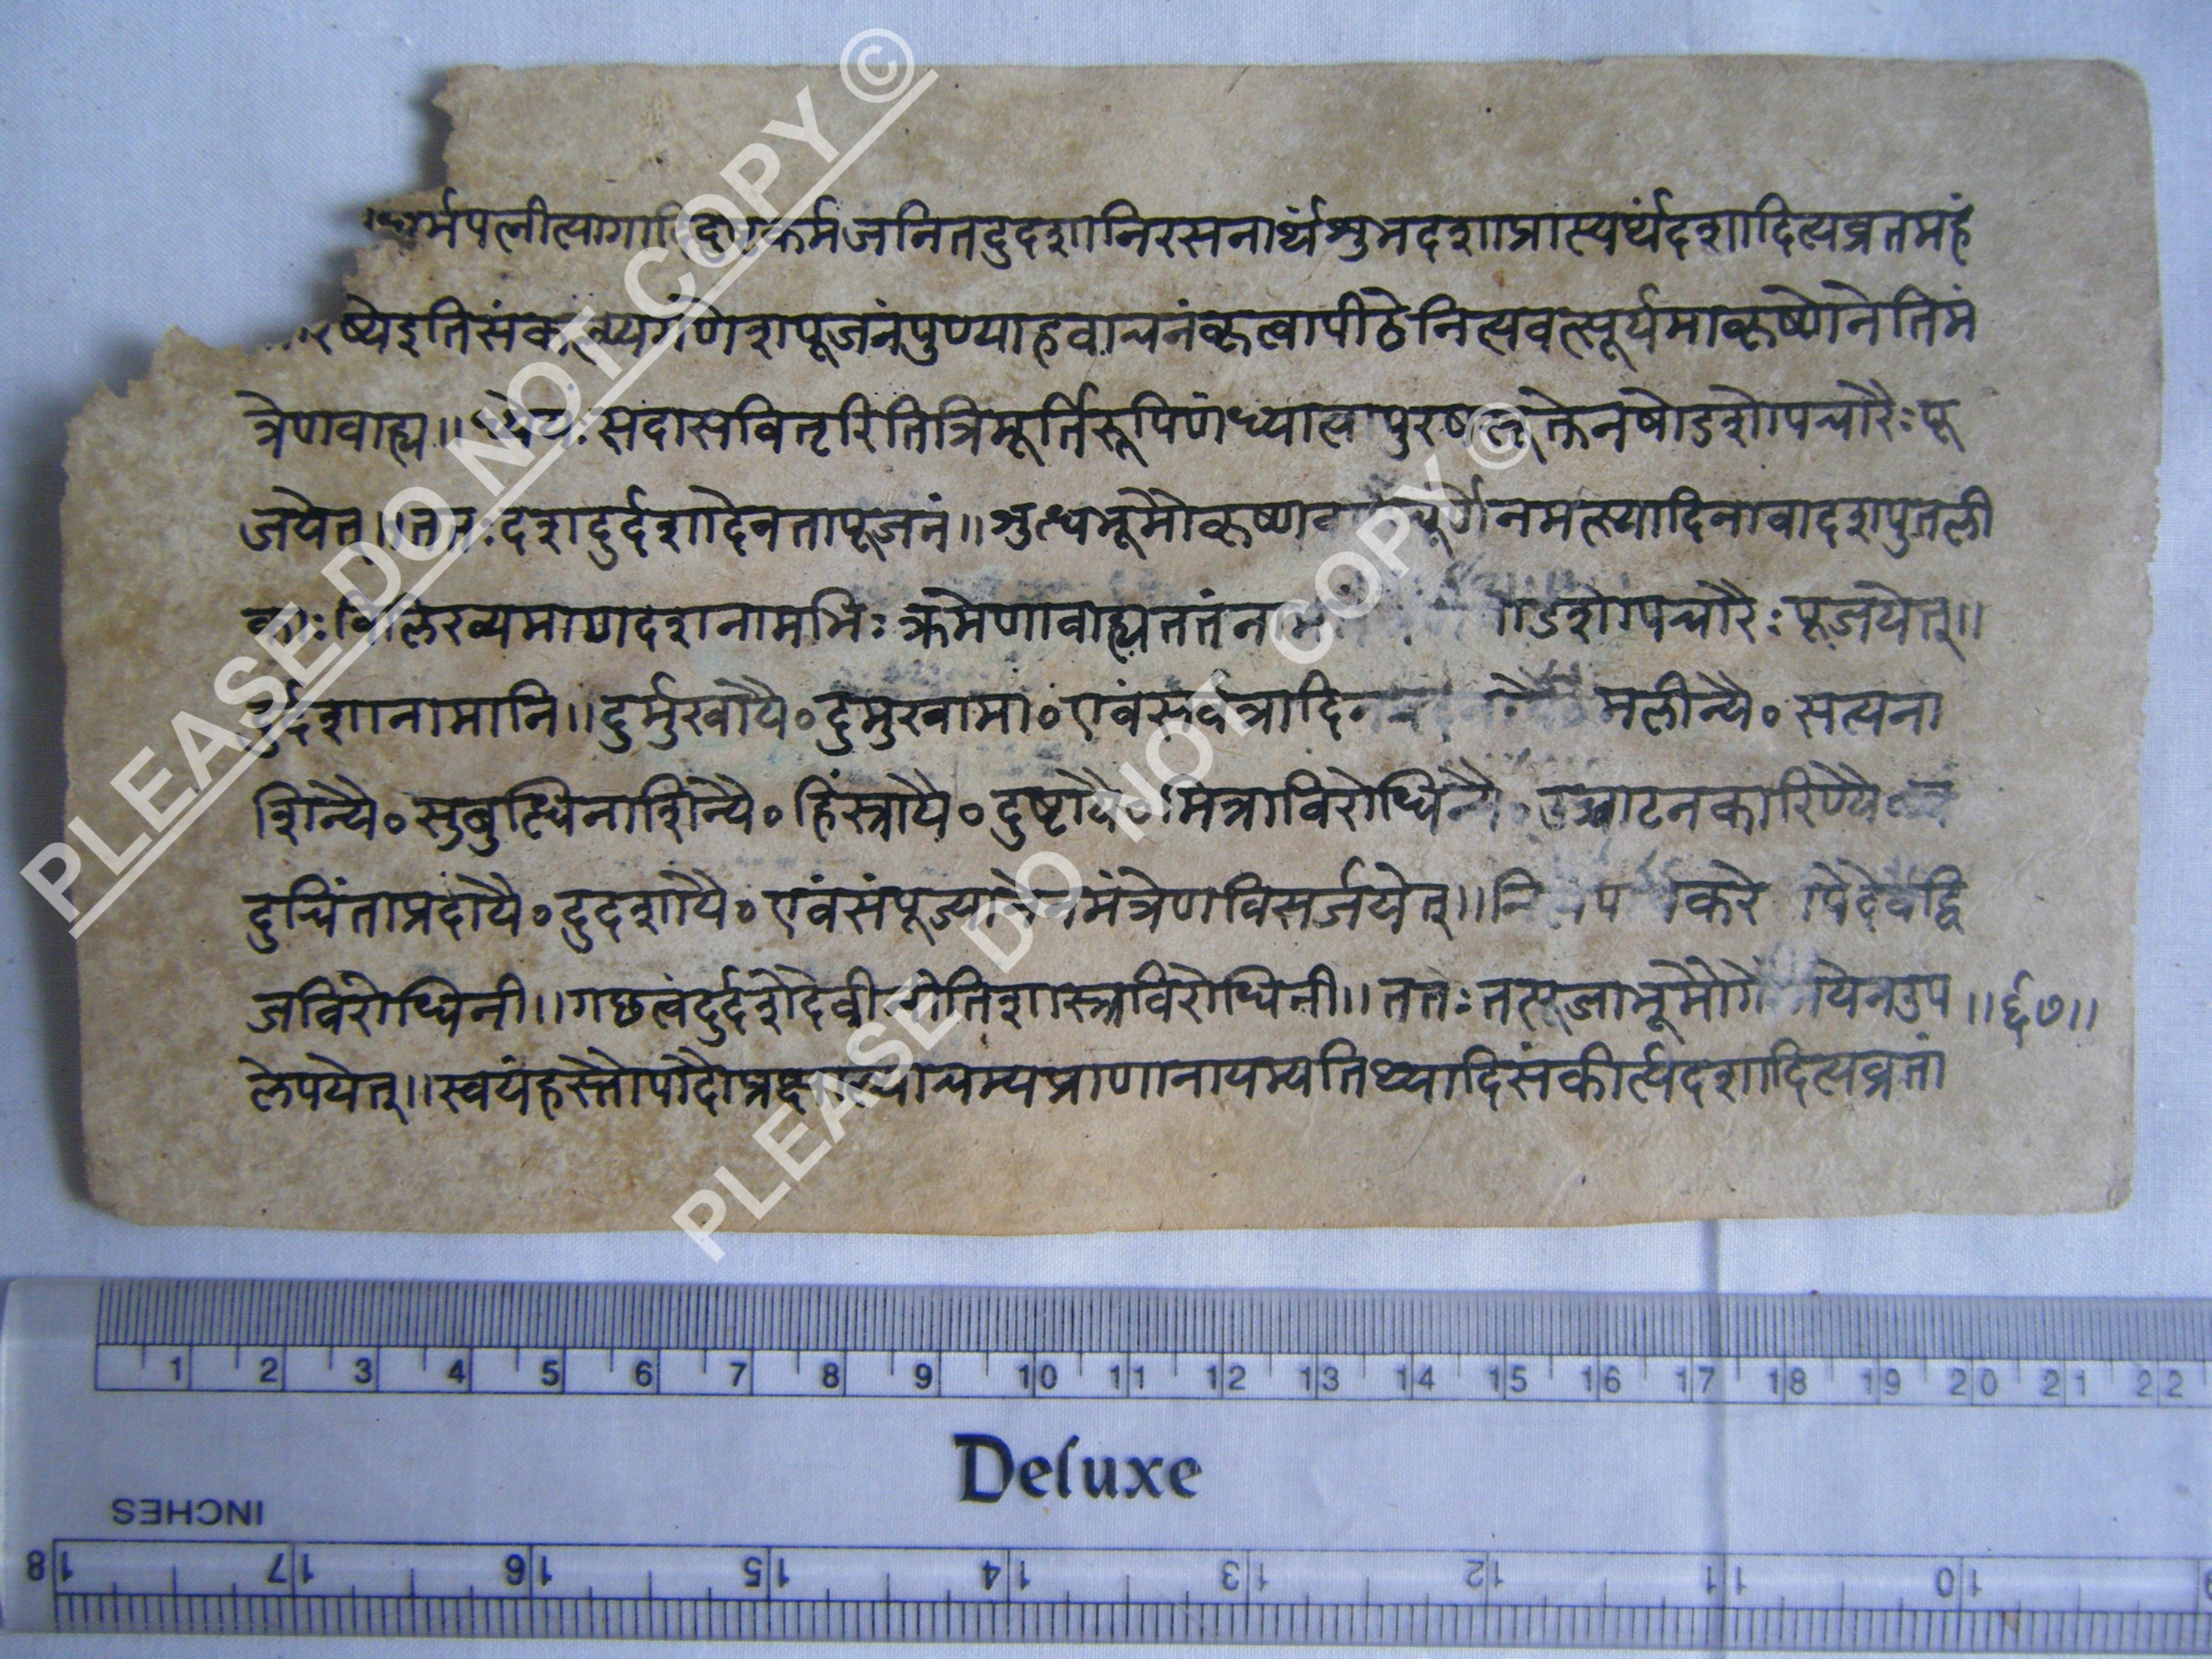 धर्मपत्नीत्यागादिदुष्टकर्मजनितदुदशानिरसनार्थंशुभदशाप्राप्त्यर्थंदशादित्यव्रतमहं
रिष्येइतिसंकल्प्यगणेशपूजनंपुण्याहवाचनंकृत्वापीठेनित्यवत्सूर्यमाकृष्णेनेतिमं
त्रेणवाह्य॥ध्येयःसदासवितृरितित्रिमूर्तिरूपिणंध्यात्वापुरषसूक्तेनषोडशोपचारैःपू
जयेत्॥ततःदशदुर्दशादेवतापूजनं॥शुत्धभूमौकृष्णव चूर्णेनमत्स्यादिनावादशपुतली
काःविलिख्यमाणदशनामभिःक्रमेणावाह्यततंनाम डशोपचारैःपूजयेत्॥
दुर्दशानामानि॥दुर्मुखायै॰दुमुखामा॰एवंसर्वत्रादि मलीन्यै॰सत्यना
शिन्यै॰सुबुत्धिनाशिन्यै॰हिंस्त्रायै॰दुष्टायै॰मित्राविरोधिन्यै॰उच्चाटनकारिण्यै॰
दुचिंताप्रदायै॰दुदशायै॰एवंसंपूज्यानेनमंत्रेणविसर्जयेत्॥नि प करे पेदेवद्वि
जविरोधिनी॥गछत्वंदुर्दशेदेवीनीतिशास्त्रविरोधिनी॥ततःतत्पूजाभूमौगोमयेनउप
॥६७॥
लेपयेत्॥स्वयंहस्तौपादौप्रक्षाल्याचम्यप्राणानायम्यतिथ्यादिसंकीर्त्यदशादित्यव्रतां
PLEASE DO NOT COPY ©
PLEASE DO NOT COPY ©
1 2 3 4 5 6 7 8 9 10 11 12 13 14 15 16 17 18 19 20 21 22
Deluxe
INCHES
18 17 16 15 14 13 12 11 10